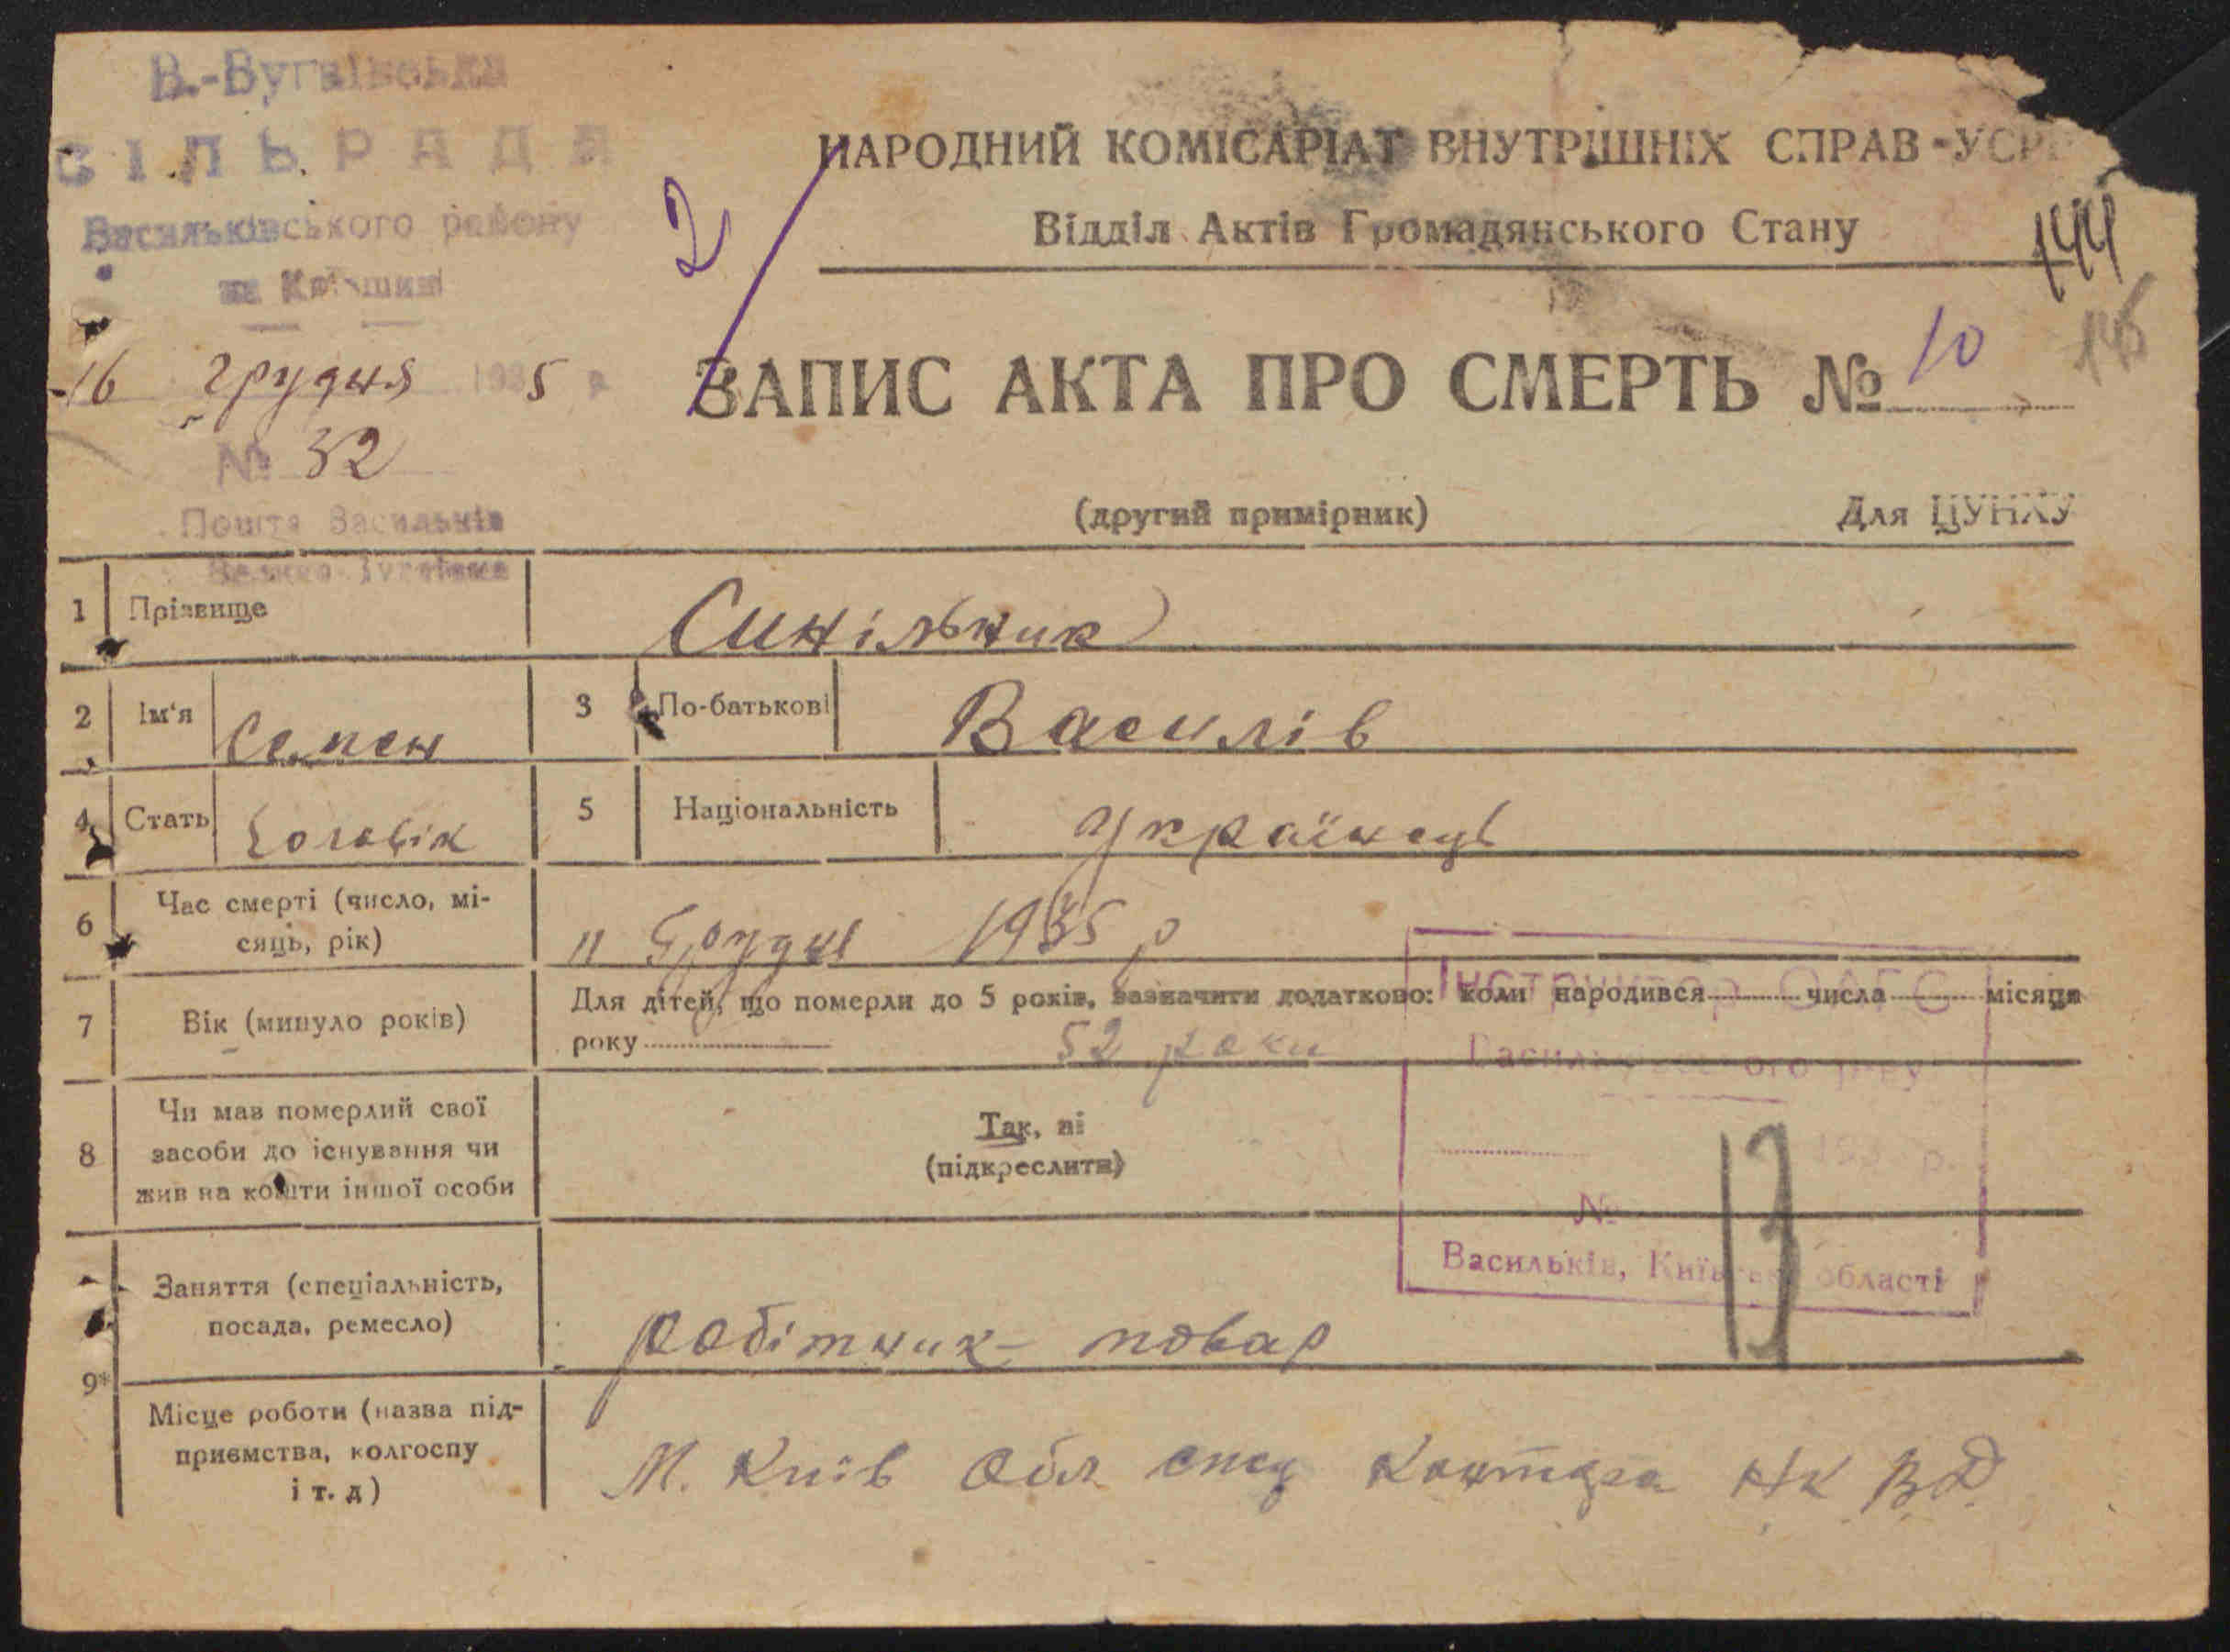 В.-Бугаївська
СІЛЬРАДА
Васильківського району
на Київщині
16 грудня 1935 р
№ 32
Пошта Васильків
Велика Бугаївка
2
НАРОДНИЙ КОМІСАРІАТ ВНУТРІШНІХ СПРАВ - УСР
Відділ Актів Громадянського Стану
144
145
ЗАПИС АКТА ПРО СМЕРТЬ № 10
(другий примірник)
Для ЦУНХУ
1 Прізвище Синільник
2 Ім'я Семен 3 По-батькові Василів
4 Стать Чоловік 5 Національність Українець
6 Час смерті (число, мі-
сяць, рік)
11 Грудня 1935 р
7 Вік (минуло років)
Для дітей, що померли до 5 років, зазначити додатково: коли народився числа місяця
року 52 роки
8 Чи мав померлий свої
засоби до існування чи
жив на кошти іншої особи
Так, ні
(підкреслити)
Інструктор ОАГС
Васильківського р-ву
193 р.
№
Васильків, Київської області
13
9*
Заняття (спеціальність,
посада, ремесло)
робітник - повар
Місце роботи (назва під-
приємства, колгоспу
і т. д)
М. Київ Обл спец Контора НК ВД